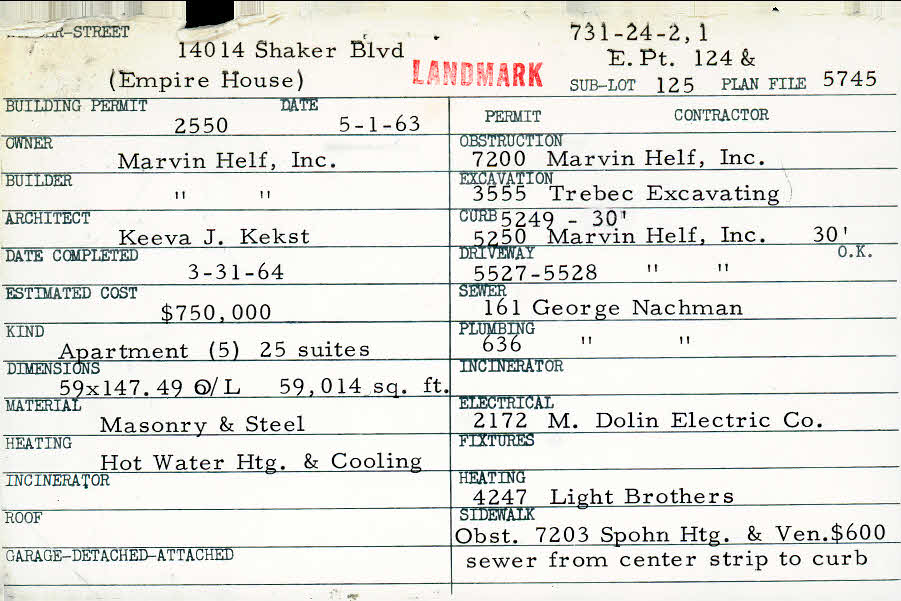 -STREET
14014 Shaker Blvd
(Empire House)
LANDMARK
731-24-2,1
E. Pt. 124 &
SUB-LOT 125 PLAN FILE 5745
BUILDING PERMIT DATE
2550 5-1-63
OWNER
Marvin Helf, Inc.
BUILDER
" "
ARCHITECT
Keeva J. Kekst
DATE COMPLETED
3-31-64
ESTIMATED COST
$750,000
KIND
Apartment (5) 25 suites
DIMENSIONS
59x147.49 O/L 59,014 sq. ft.
MATERIAL
Masonry & Steel
HEATING
Hot Water Htg. & Cooling
INCINERATOR
ROOF
GARAGE-DETACHED-ATTACHED
PERMIT CONTRACTOR
OBSTRUCTION
7200 Marvin Helf, Inc.
EXCAVATION
3555 Trebec Excavating
CURB 5249 - 30'
5250 Marvin Helf, Inc. 30'
DRIVEWAY O.K.
5527-5528 " "
SEWER
161 George Nachman
PLUMBING
636 " "
INCINERATOR
ELECTRICAL
2172 M. Dolin Electric Co.
FIXTURES
HEATING
4247 Light Brothers
SIDEWALK
Obst. 7203 Spohn Htg. & Ven.$600
sewer from center strip to curb